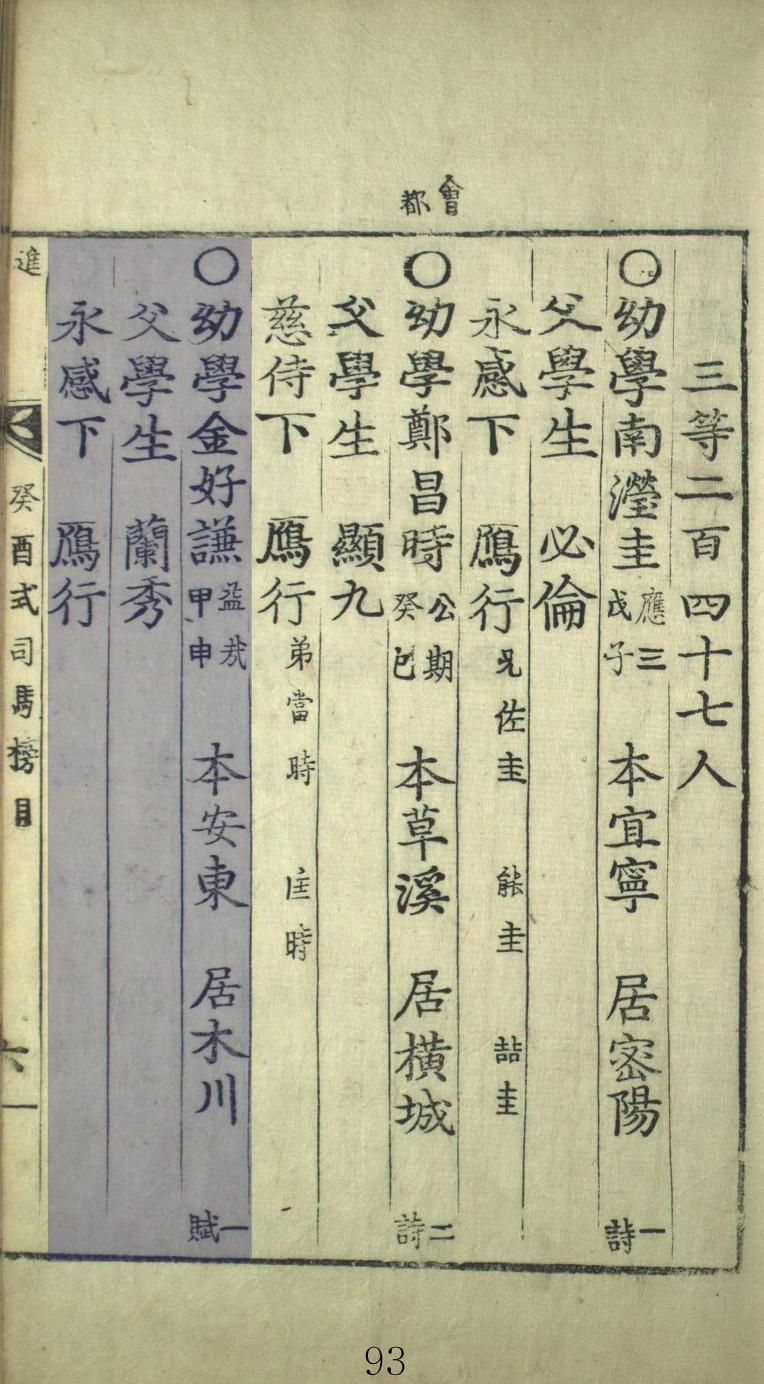 會
都
三等二百四十七人
○幼學南瀅圭 應三 戊子 本宜寧 居密陽 一詩
父學生 必倫
永感下 鴈行 兄佐圭 能圭 喆圭
○幼學鄭昌時 公期 癸巳 本草溪 居橫城 二詩
父學生 顯九
慈侍下 鴈行 弟當時 匡時
○幼學金好謙 益哉 甲申 本安東 居木川 一賦
父學生 蘭秀
永感下 鴈行
進 癸酉式司馬榜目 六一
93